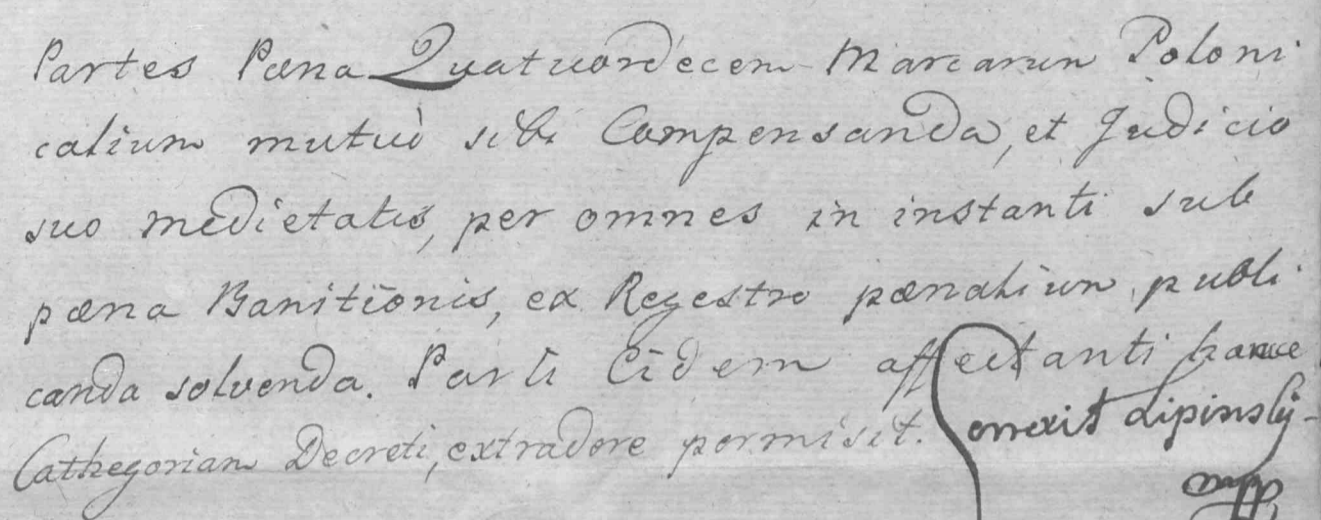 Partes Pæna Quatuordecem Marcarum Poloni
calium mutuò sibi Compensanda, et Judicio
suo medietatis, per omnes in instanti sub
pæna Banitionis, ex Regestro pænalium publi
canda solvenda. Parti Eidem affectanti hancce
Cathegoriam Decreti, extradere permisit. Correxit Lipinsky
mpp